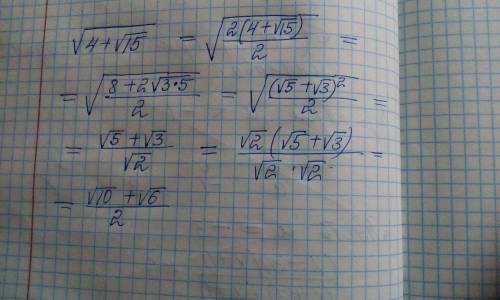 √(4+√15) = √(2(4+√15)/2) =
= √((8+2√(3·5))/2) = √((√5+√3)²/2) =
= (√5+√3)/√2 = √2(√5+√3)/(√2·√2) =
= (√10+√6)/2